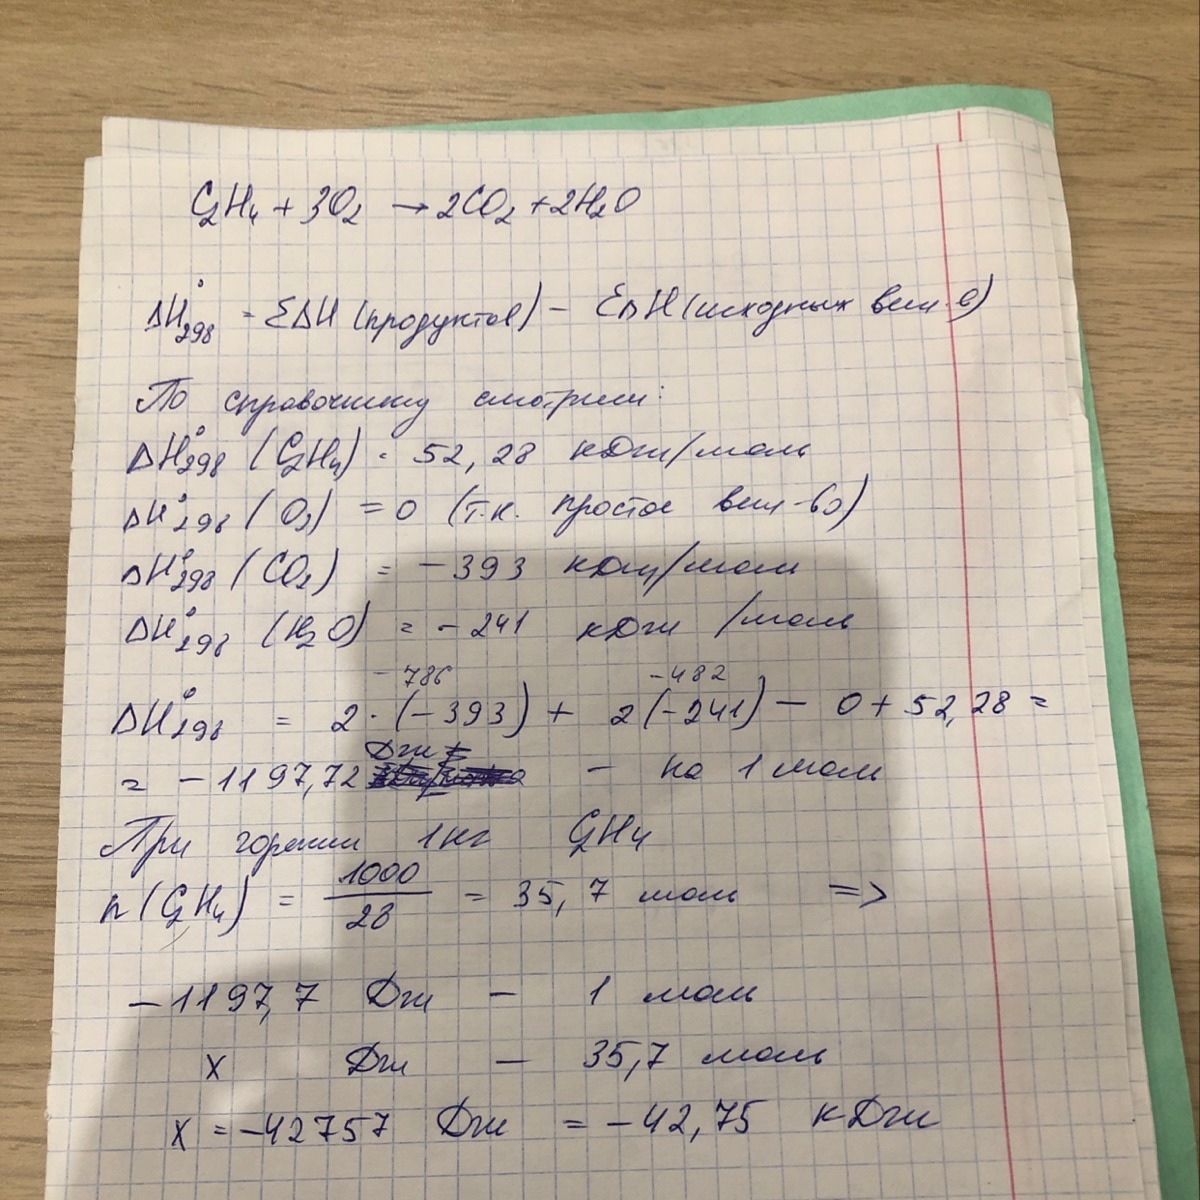 C2H4 + 3O2 → 2CO2 + 2H2O
ΔH°298 = ΣΔH (продуктов) - ΣΔH (исходных вещ-в)
По справочнику смотрим:
ΔH°298 (C2H4) = 52,28 кДж/моль
ΔH°298 (O2) = 0 (т.к. простое вещ-во)
ΔH°298 (CO2) = -393 кДж/моль
ΔH°298 (H2O) = -241 кДж /моль
-786 -482
ΔH°298 = 2·(-393) + 2(-241) - 0 + 52,28 =
= -1197,72 Дж - на 1 моль
При горении 1кг C2H4
n(C2H4) = 1000/28 = 35,7 моль =>
-1197,7 Дж - 1 моль
x Дж - 35,7 моль
x = -42757 Дж = -42,75 кДж